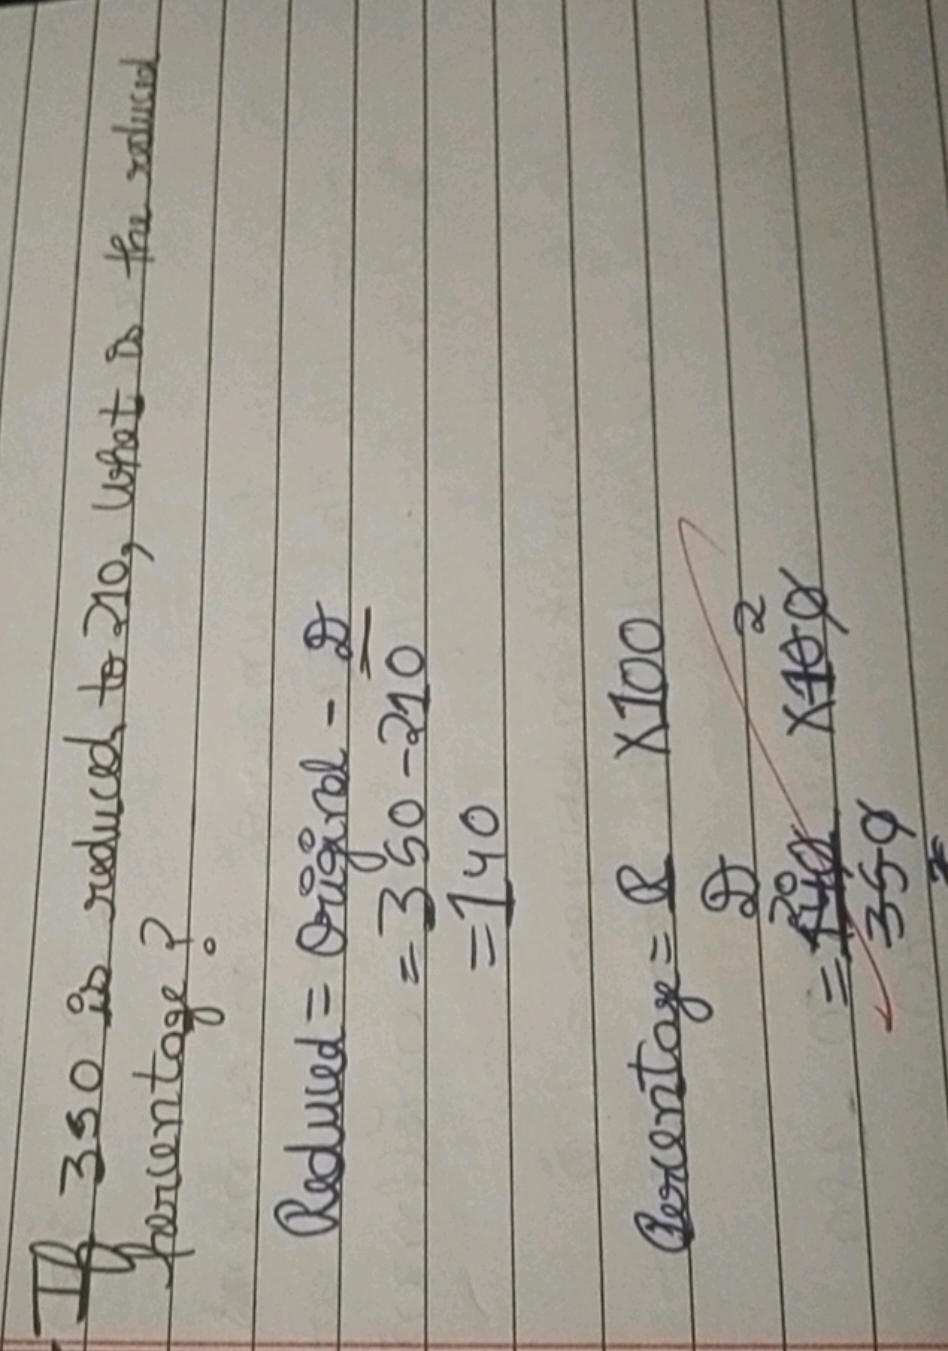 If 350 is reduced to 210, what is the reduced
percentage ?
Reduced = Original - D
= 350 - 210
= 140
Percentage = R X100
D
20 2
= 140 X100
350